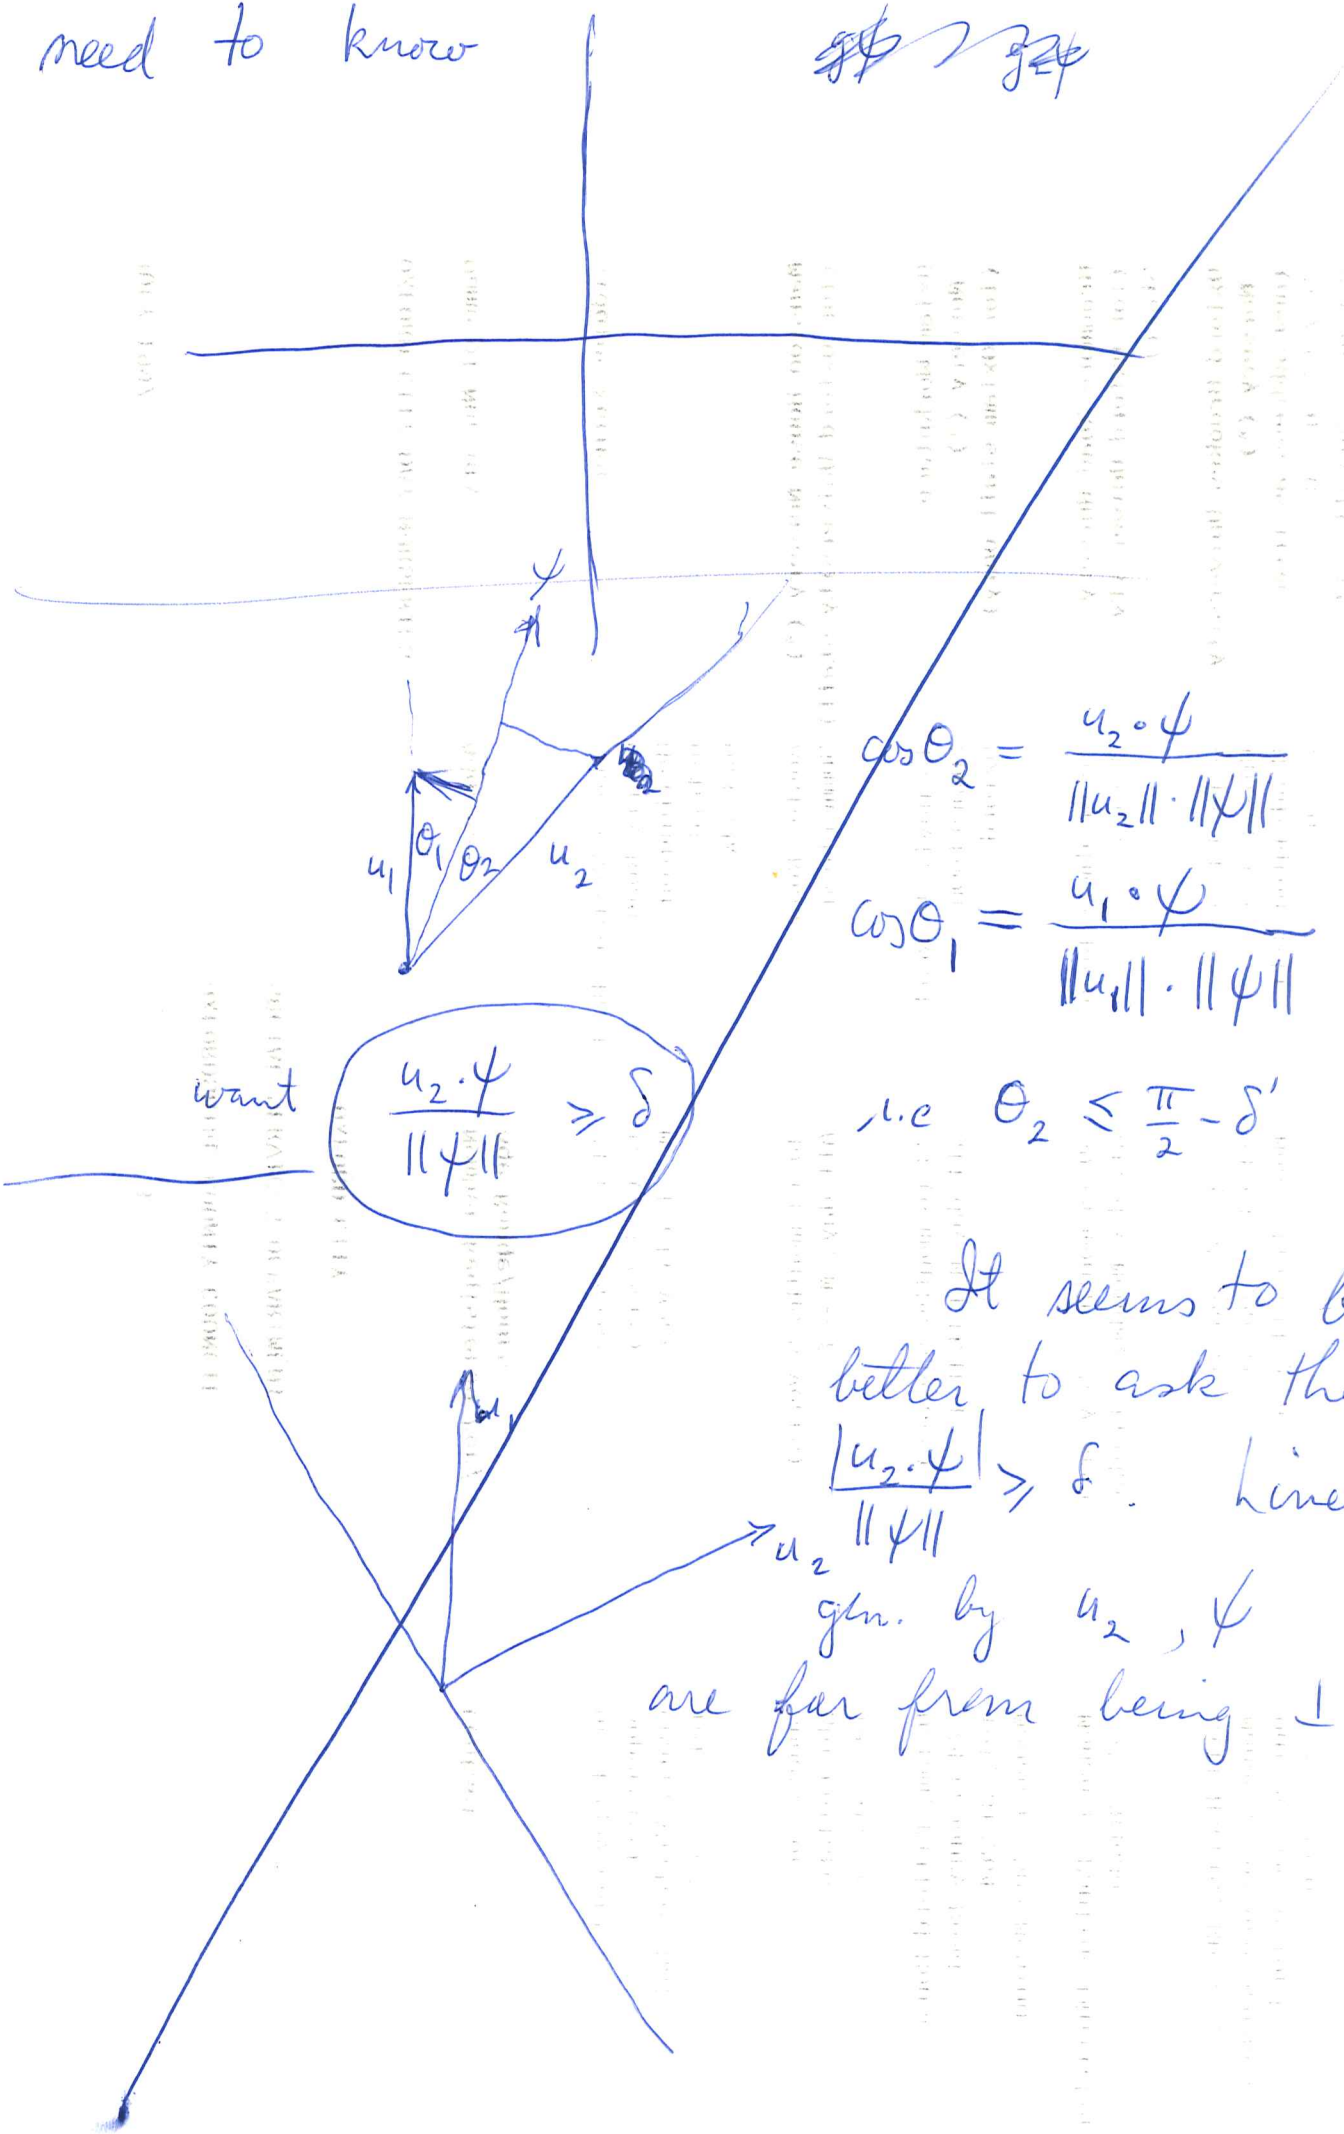 need to know
ψ
θ₁ θ₂
u₁ u₂
cosθ₂ = u₂·ψ / ||u₂||·||ψ||
cosθ₁ = u₁·ψ / ||u₁||·||ψ||
want u₂·ψ / ||ψ|| ≥ δ
i.e θ₂ ≤ π/2 - δ'
It seems to
better to ask
|u₂·ψ| / ||ψ|| ≥ δ.
u₁
u₂
gen. by u₂, ψ
are far from being ⊥